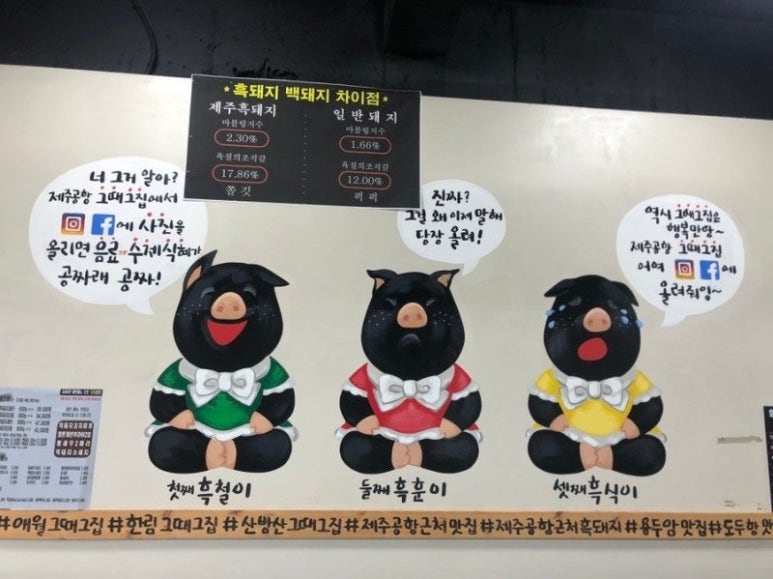 *흑돼지 백돼지 차이점*
제주흑돼지
마블링지수
2.30%
육질의조직감
17.86%
쫄깃
일반돼지
마블링지수
1.66%
육질의조직감
12.00%
퍽퍽
너 그거 알아?
제주공항 그때그집에서
에 사진을
올리면 음료or수제식혜가
공짜래 공짜!
진짜?
그걸 왜 이제 말해
당장 올려!
역시 그때그집은
행복만땅~
제주공항 그때그집
어여 에
올려줘잉~
첫째 흑철이
둘째 흑훈이
셋째 흑식이
#애월그때그집 #한림그때그집 #산방산그때그집 #제주공항근처맛집 #제주공항근처흑돼지 #용두암맛집 #도두항맛